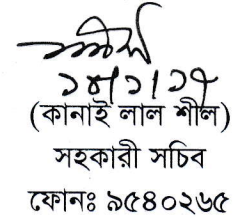 ১৪/১/১৭
(কানাই লাল শীল)
সহকারী সচিব
ফোনঃ ৯৫৪০২৬৫